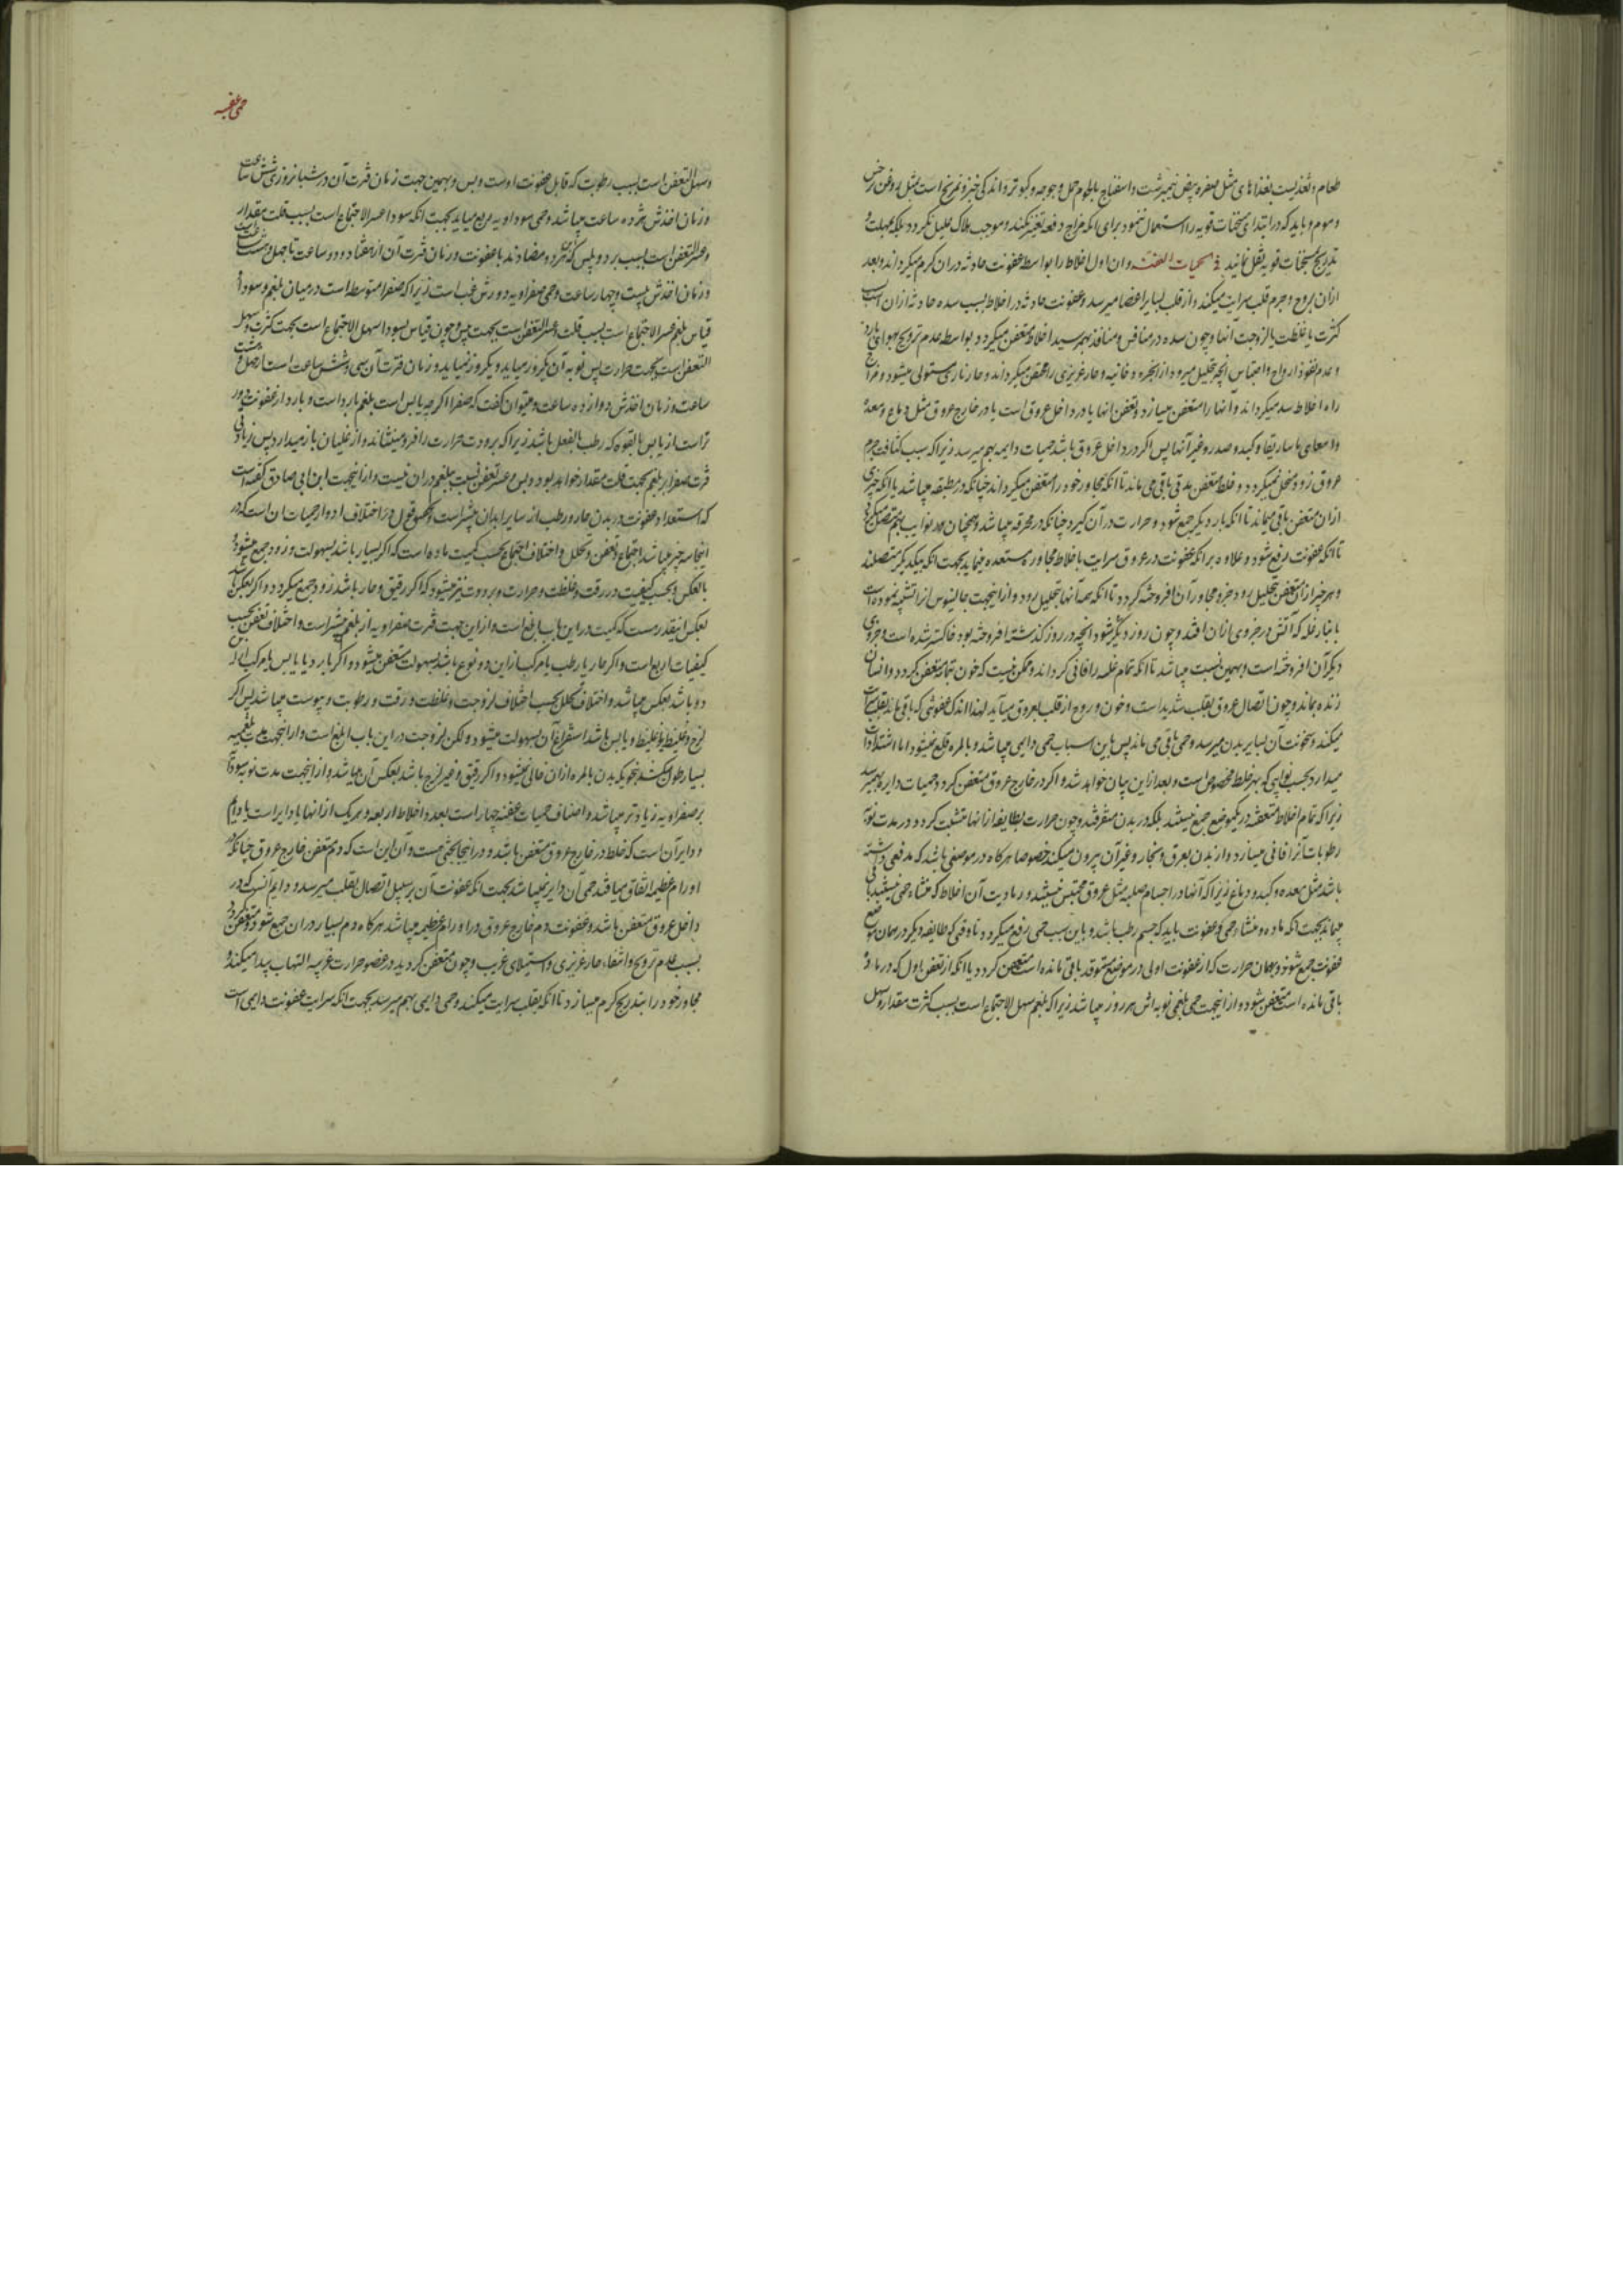 طعام و تغذیست بغذاهای مثل صفره بیض نیمبرشت و اسفناج بالحوم حمل و جوجه و کبوتر و اندکی خبز و تمریخ است بمثل روغن نرجس
و موم و باید که در ابتدای سخنات قویه را استعمال ننمود برای انکه مزاج دفعة تغییر نکند و موجب هلاک علیل نکردد بلکه بمهلت و
تدریج بسخنات قویه نقل نمایند فی الحمیات العفنه و ان اول اخلاط را بواسطه عفونت حادثه دران کرم میکرداند و بعد
ازان بروح و جرم قلب سرایت میکند و از قلب بسایر اعضا میرسد و عفونت حادثه در اخلاط بسبب سده حادثه ازان است
کثرت یا غلظت یا لزوجت آنها و چون سده در منافس و منافذ بهمرسید اخلاط متعفن میکردد بواسطه عدم ترویح بهوای بارد
و عدم نفوذ ارواح و احتباس انچه بتحلیل میرود از ابخره دخانیه و حار غریزی را مختنق میکرداند و حار ناری مستولی میشود و مزاج
راه اخلاط سد میکرداند و آنها را متعفن میسازد و تعفن انها یا در داخل عروق است یا در خارج عروق مثل دماغ و معده
و امعا و ماساریقا و کبد و صدر و غیر آنها پس اکر در داخل عروق باشد حمیات دایمه بهم میرسد زیرا که سبب کثافت جرم
عروق زود متحلل نمیکردد و خلط متعفن مدتی باقی می ماند تا انکه مجاور خود را متعفن میکرداند چنانکه در مطبقه میباشد یا انکه چیزی
ازان متعفن باقی میماند تا انکه بار دیکر جمع شود و حرارت در آن کیرد چنانکه در محرقه میباشد و همچنان هر نوایب بهم متصل میکردد
تا انکه عفونت رفع شود و علاوه بر انکه عفونت در عروق سرایت باخلاط مجاوره مستعده مینماید بجهت انکه بیکدیکر متصلند
و هر چیز ازان متعفن بتحلیل رود جزو مجاور آن افروخته کردد تا انکه همه آنها بتحلیل رود و از اینجهت جالینوس انرا تشبیه نموده است
بانبار غله که آتش در جزوی ازان افتد و چون روز دیکر شود انچه در روز کذشته افروخته بود خاکستر شده است و جزوی
دیکر آن افروخته است و بهمین نسبت میباشد تا انکه تمام غله را فانی کرداند و ممکن نیست که خون تمام متعفن کردد و انسان
زنده بماند و چون اتصال عروق بقلب شدید است و خون و روح از قلب بعروق میآید لهذا اندک عفونتی که باقی ماند بقلب سرایت
میکند و سخونت آن بسایر بدن میرسد و حمی باقی می ماند پس باین اسباب حمی دایمی میباشد و بالمره قلع نمیشود اما اشتدادات
میدارد بحسب نوایبی که بهر خلط مخصوص است و بعد ازاین بیان خواهد شد و اکر در خارج عروق متعفن کردد حمیات دایره بهم میرسد
زیرا که تمام اخلاط متعفنه در یکموضع جمع نیستند بلکه در بدن متفرقند و چون حرارت بطایفه ازانها متشبث کردد در مدت نوبه
رطوبات آنرا فانی میسازد و از بدن بعرق و بخار و غیر آن بیرون میکند خصوصا هرکاه در موضعی باشد که مدفعی داشته
باشد مثل معده و کبد و دماغ زیرا که آنها در اجسام صلبه مثل عروق محتبس نیستند و رمادیت آن اخلاط که منشاء حمی نیستند باقی
میماند بجهت انکه ماده و منشاء حمی و عفونت باید که جسم رطب باشد و باین سبب حمی رفع میکردد تا وقتی که طایفه دیکر در همان موضع
عفونت جمع شود و بهمان حرارت که از عفونت اولی در موضع متوقد باقی مانده است متعفن کردد یا انکه از تعفن اول که در ماده
باقی مانده است متعفن شود و از اینجهت حمی بلغمی نوبه اش هر روز میباشد زیرا که بلغم سهل الاجتماع است بسبب کثرت مقدار و سهل
حمی عفنه
و سهل التعفن است بسبب رطوبت که قابل عفونت اوست و بس و بهمین جهت زمان فترت آن در شبانروزی شش ساعت
و زمان اخذش هژده ساعت میباشد و حمی سوداویه بربع میاید بجهت انکه سودا عسر الاجتماع است بسبب قلت مقدار
و عسر التعفن است بسبب برد و یبس که هر دو مضادند با عفونت و زمان فترت آن از هفتاد و دو ساعت تا چهل و هشت
و زمان اخذش بیست و چهار ساعت و حمی صفراویه دورش غب است زیرا که صفرا متوسط است در میان بلغم و سودا
قیاس بلغم عسر الاجتماع است بسبب قلت و عسر التعفن است بجهت یبس و چون قیاس بسودا سهل الاجتماع است بجهت کثرت و سهل
التعفن است بجهت حرارت پس نوبه آن یکروز میاید و یکروز نمیاید و زمان فترت آن سی و شش ساعت است از چهل و هشت
ساعت و زمان اخذش دوازده ساعت و میتوان کفت که صفرا اکرچه یابس است بلغم بارد است و بارد از عفونت دور
تر است از یابس بالقوه که رطب بالفعل باشد زیرا که برودت حرارت را فرو مینشاند و از غلیان باز میدارد پس زیادتی
فترت صفرا بر بلغم بجهت قلت مقدار خواهد بود و بس و عسر تعفن نسبت ببلغم دران نیست و از اینجهت ابن ابی صادق کفته است
که استعداد عفونت در بدن حار و رطب از سایر ابدان بیشتر است و محصّل قول در اختلاف ادوار حمیات ان است که در
اینجا سه چیز میباشد اجتماع و تعفن و تحلل و اختلاف اجتماع بحسب کمیت ماده است که اکر بسیار باشد بسهولت و زود جمع میشود
بالعکس و بحسب کیفیت در رقت و غلظت و حرارت و برودت نیز میشود که اکر رقیق و حار باشد زود جمع میکردد و اکر بعکس باشد
بعکس اینقدر هست که کمیت در این باب ابلغ است و از این جهت فترت صفراویه از بلغمی بیشتر است و اختلاف تعفن بحسب
کیفیات اربع است و اکر حار یا رطب یا مرکب ازاین دو نوع باشد بسهولت متعفن میشود و اکر بارد یا یابس یا مرکب از
دو باشد بعکس میباشد و اختلاف تحلل بحسب اختلاف لزوجت و غلظت و رقت و رطوبت و یبوست میباشد پس اکر
لزج و غلیظ یا غلیظ و یابس باشد استفراغ آن بسهولت میشود و لکن لزوجت در این باب ابلغ است و از اینجهت مدت بلغمیه
بسیار طول میکشد بنحویکه بدن بالمره ازان خالی نمیشود و اکر رقیق و غیر لزج باشد بعکس آن میباشد و از اینجهت مدت نوبه سوداویه
بر صفراویه زیادتر میباشد و اصناف حمیات عفنه چهار است بعدد اخلاط اربعه و هر یک از انها یا دایر است یا دایم
و دایر آن است که خلط در خارج عروق متعفن باشد و در اینجا بحثی هست و آن این است که دم متعفن خارج عروق چنانکه در
اورام عظیمه اتفاق میافتد حمی آن دایر نمیباشد بجهت انکه عفونت آن بر سبیل اتصال بقلب میرسد و دایم آنست که در
داخل عروق متعفن باشد و عفونت دم خارج عروق در اورام عظیمه میباشد هرکاه دم بسیار دران جمع شود و متعفن کردد
بسبب عدم ترویح و انتفاء حار غریزی و استیلای غریب و چون متعفن کردید در عضو حرارت غریبه التهاب پیدا میکند و
مجاور خود را بتدریج کرم میسازد تا انکه بقلب سرایت میکند و حمی دایمی بهم میرسد بجهت انکه سرایت عفونت دایمی است